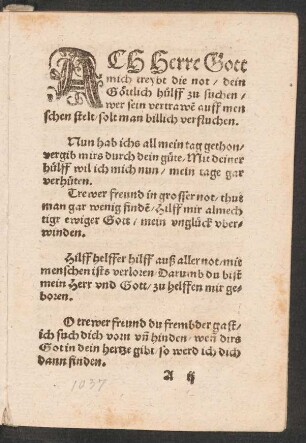 ACH Herre Gott
mich treybt die not / dein
Göttlich hülff zu suchen /
wer sein vertrawē auff men
schen stelt / solt man billich verfluchen.
Nun hab ichs all mein tag gethon /
vergib mirs durch dein güte. Mit deiner
hülff wil ich mich nun / mein tage gar
verhüten.
Trewer freund in grosser not / thut
man gar wenig findē / Hilff mir almech
tiger ewiger Gott / mein vnglück vber-
winden.
Hilff helffer hilff auß aller not / mit
menschen ists verloren / Darumb du bist
mein Herr vnd Gott / zu helffen mir ge-
boren.
O trewer freund du frembder gast /
ich such dich vorn vñ hinden / wen̄ dirs
Got in dein hertze gibt / so werd ich dich
dann finden.
A ij
1037